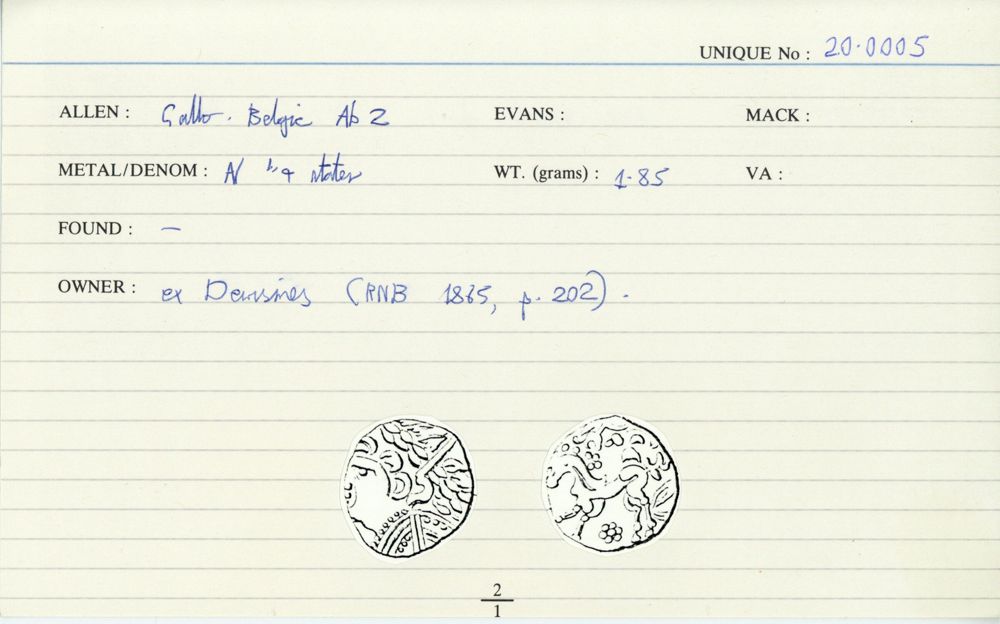 UNIQUE No : 20.0005
ALLEN : Gallo-Belgic Ab 2 EVANS : MACK :
METAL/DENOM : N 1/4 stater WT. (grams) : 1.85 VA :
FOUND : —
OWNER : ex (RNB 1865, p. 202).
2
1